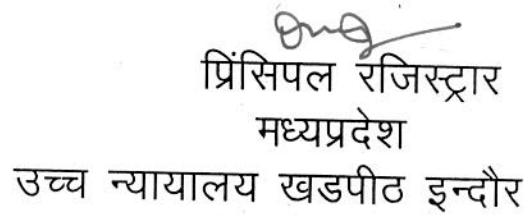 प्रिंसिपल रजिस्ट्रार
मध्यप्रदेश
उच्च न्यायालय खडपीठ इन्दौर